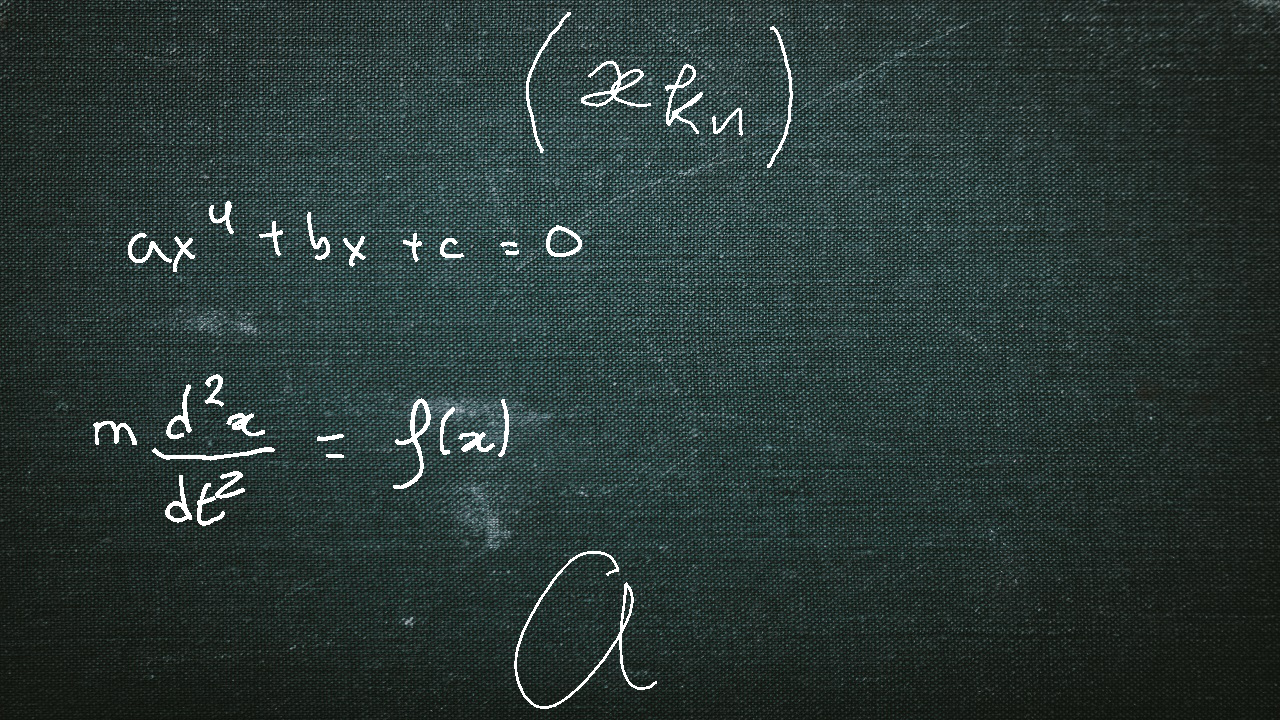 (x k_n)
ax^4 + bx + c = 0
m d^2x/dt^2 = f(x)
a